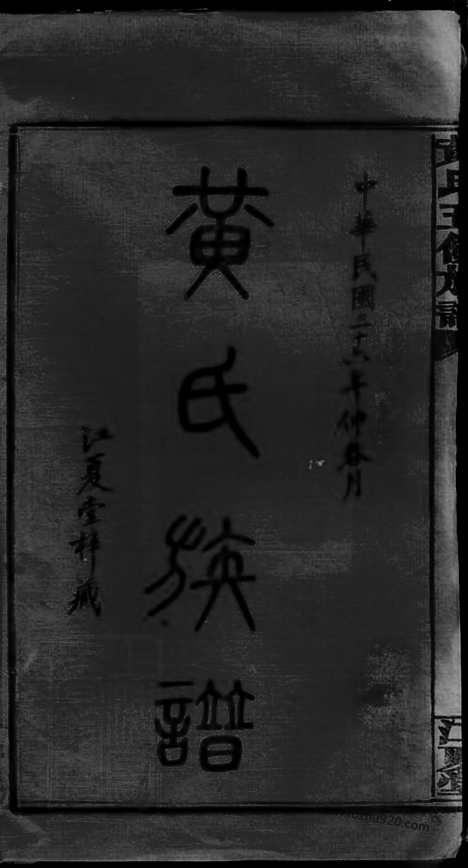 中華民國二十六年仲春月
黃氏族譜
江夏堂梓藏
黃氏五修族譜